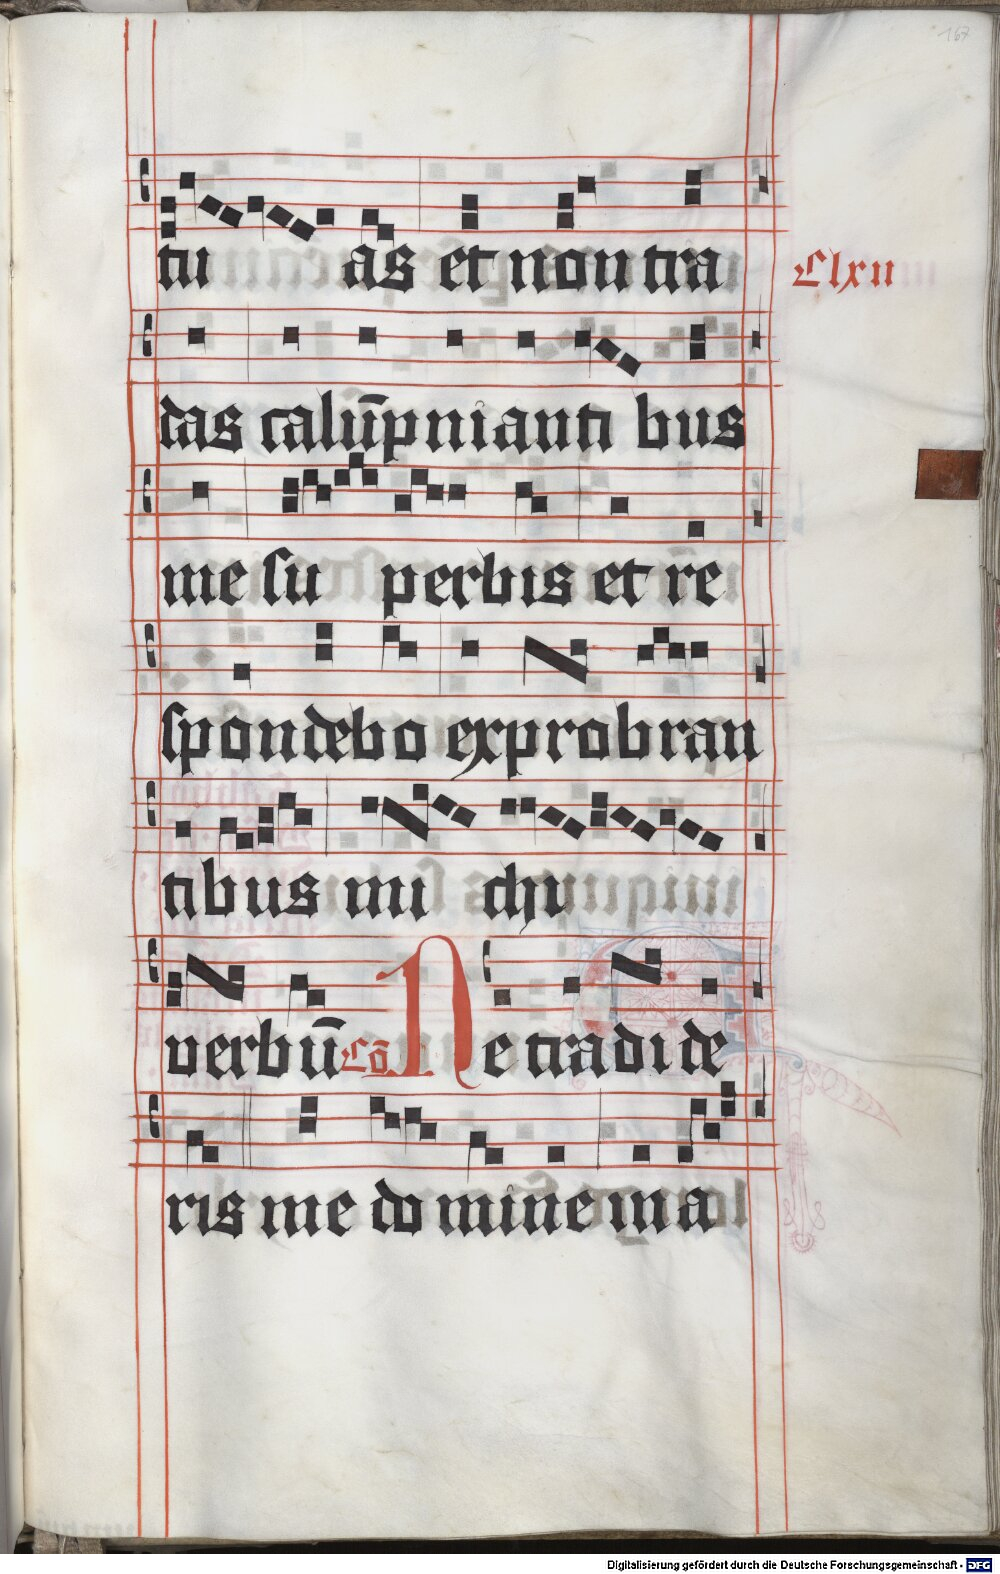 167
tu as et non tra
Clxii
das calūpnianti bus
me su perbis et re
spondebo exprobran
tibus mi chi
verbū Cō Ne tradide
ris me domine in a
Digitalisierung gefördert durch die Deutsche Forschungsgemeinschaft - DFG